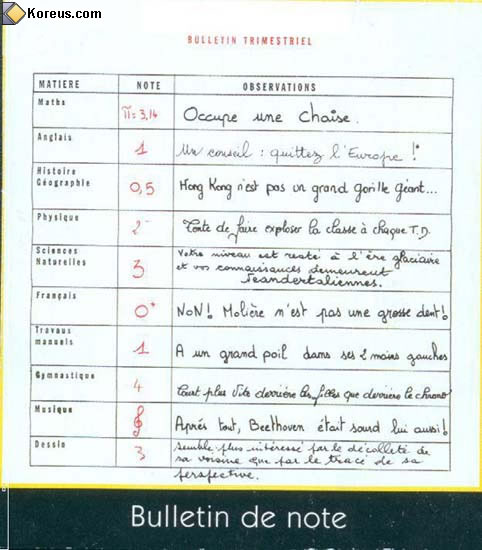 Koreus.com
BULLETIN TRIMESTRIEL
MATIERE NOTE OBSERVATIONS
Maths π=3,14 Occupe une chaise.
Anglais 1 Un conseil : quittez l'Europe !*
Histoire
Géographie 0,5 Hong Kong n'est pas un grand gorille géant...
Physique 2- Tente de faire exploser la classe à chaque T.D.
Sciences
Naturelles 3 Votre niveau est resté à l'ère glaciaire
et vos connaissances demeurent
neandertaliennes.
Français 0+ NON! Molière n'est pas une grosse dent!
Travaux
manuels 1 A un grand poil dans ses 2 mains gauches
Gymnastique 4 Court plus vite derrière les filles que derrière le chrono
Musique 𝄞 Après tout, Beethoven était sourd lui aussi!
Dessin 3 semble plus intéressé par le décolleté de
sa voisine que par le tracé de sa
perspective.
Bulletin de note